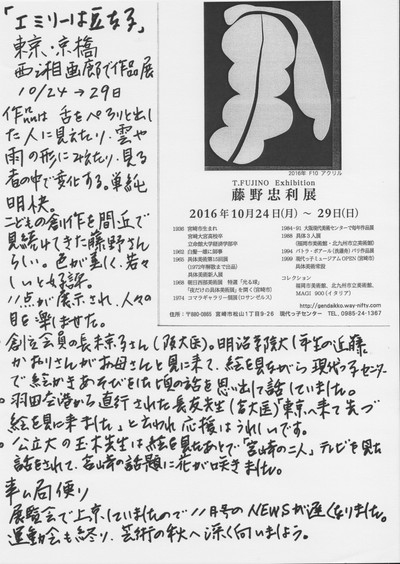 「エミリーは豆女子」
東京・京橋
西湘画廊で作品展
10/24→29日
作品は舌をペろりと出し
た人に見えたり、雲や
雨の形にみえたり、見る
者の中で変化する。単純
明快。
こどもの創作を間近で
見続けてきた藤野さん
らしい。色が美しく、若々
しいと好評。
11点が展示され、人々の
目を楽しませた。
2016年 F10 アクリル
T.FUJINO Exhibition
藤野忠利展
2016年10月24日(月)～29日(日)
1936 宮崎市生まれ
宮崎大宮高校卒
立命館大学経済学部卒
1962 白髪一雄に師事
1965 具体美術第15回展
(1972年解散まで出品)
具体美術新人展
1968 朝日西部美術展 特選「光る球」
「夜だけの具体美術展」を開く(宮崎市)
1974 コマラギャラリー個展(ロサンゼルス)
1984-91 大阪現代美術センターで毎年作品展
1988 具体3人展
(福岡市美術館・北九州市立美術館)
1994 パトラ・ポアール(洗濯舟)パリ作品展
1999 現代っ子ミュージアムOPEN(宮崎市)
具体美術常設
コレクション
福岡市美術館、北九州市立美術館、
MAGI 900(イタリア)
http://gendaikko.way-nifty.com
住所:〒880-0865 宮崎市松山1丁目9-26 現代っ子センター TEL. 0985-24-1367
創立会員の長末京子さん(阪大医)。明治学院大1年生の近藤
かおりさんがお母さんと見に来て、絵を見ながら現代っ子センター
で絵かきあそびをした頃の話を思い出して話していました。
○羽田空港から直行された長友先生(宮大医)「東京へ来て先づ
絵を見に来ました」と云われ応援はうれしいです。
○公立大の玉木先生は絵を見たあとで「宮崎の二人」テレビを見た
話をされて、宮崎の話題に花が咲きました。
事ム局便り
展覧会で上京していましたので11月号のNEWSが遅くなりました。
運動会も終り、芸術の秋へ深く向いましょう。